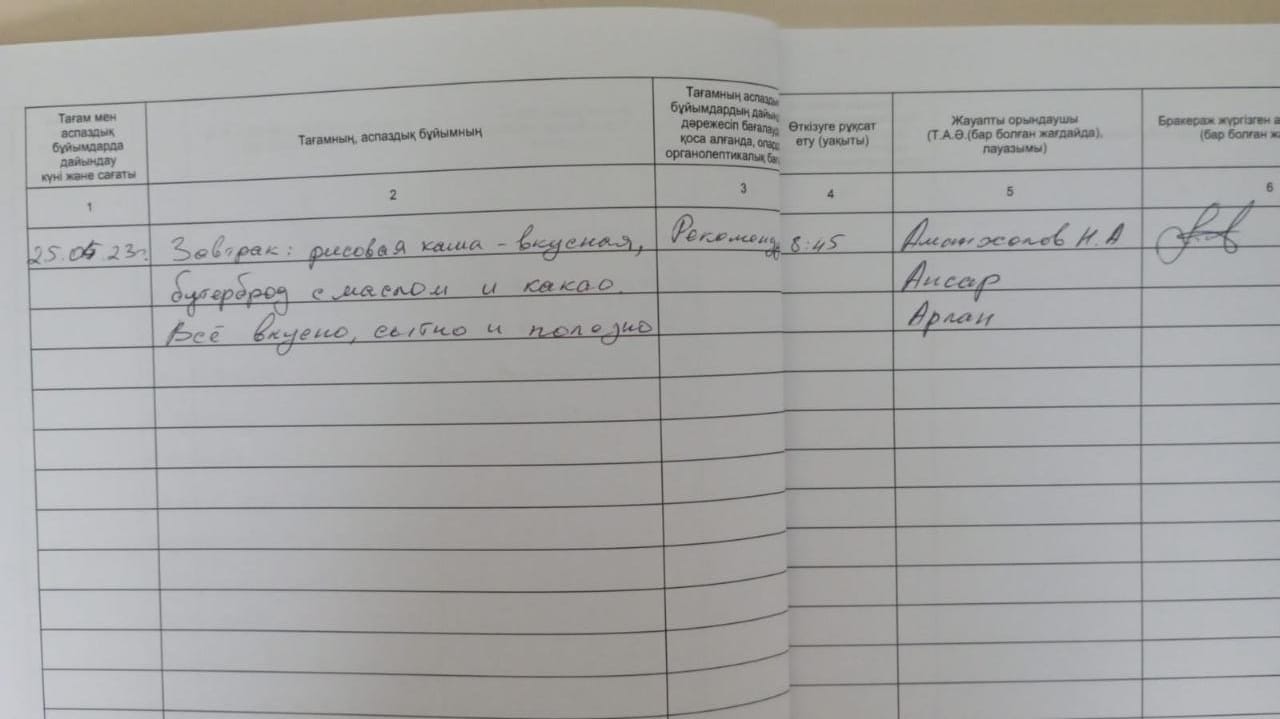 Тағам мен
аспаздық
бұйымдарда
дайындау
күні және сағаты
Тағамның, аспаздық бұйымның
Тағамның аспазды
бұйымдардың дайы
дәрежесін бағалау
қоса алғанда, олар
органолептикалық ба
Өткізуге рұқсат
ету (уақыты)
Жауапты орындаушы
(Т.А.Ә.(бар болған жағдайда),
лауазымы)
Бракераж жүргізген а
(бар болған ж
1 2 3 4 5 6
25.05.23г. Завтрак: рисовая каша - вкусная, Рекоменд 8:45 Аманжолов Н.А
бутерброд с маслом и какао. Ансар
Всё вкусно, сытно и полезно Арлан